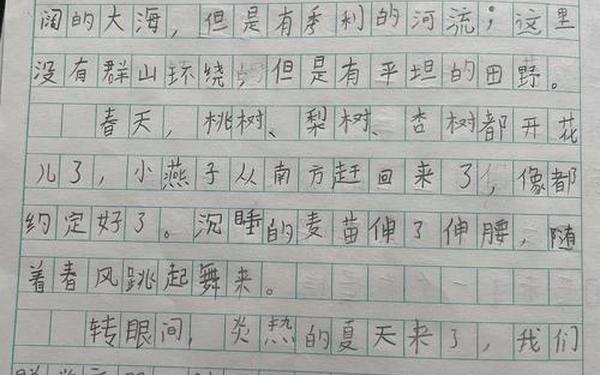 阔的大海，但是有秀利的河流；这里
没有群山环绕，但是有平坦的田野。
春天，桃树、梨树、杏树都开花
儿了，小燕子从南方赶回来了，像都
约定好了。沉睡的麦苗伸了伸腰，随
着春风跳起舞来。
转眼间，炎热的夏天来了，我们